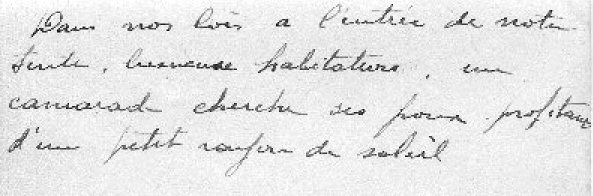 Dans nos bois a l'entrée de notre
tente, luxueuse habitation, un
camarade cherche ses poux profitant
d'un petit rayon de soleil